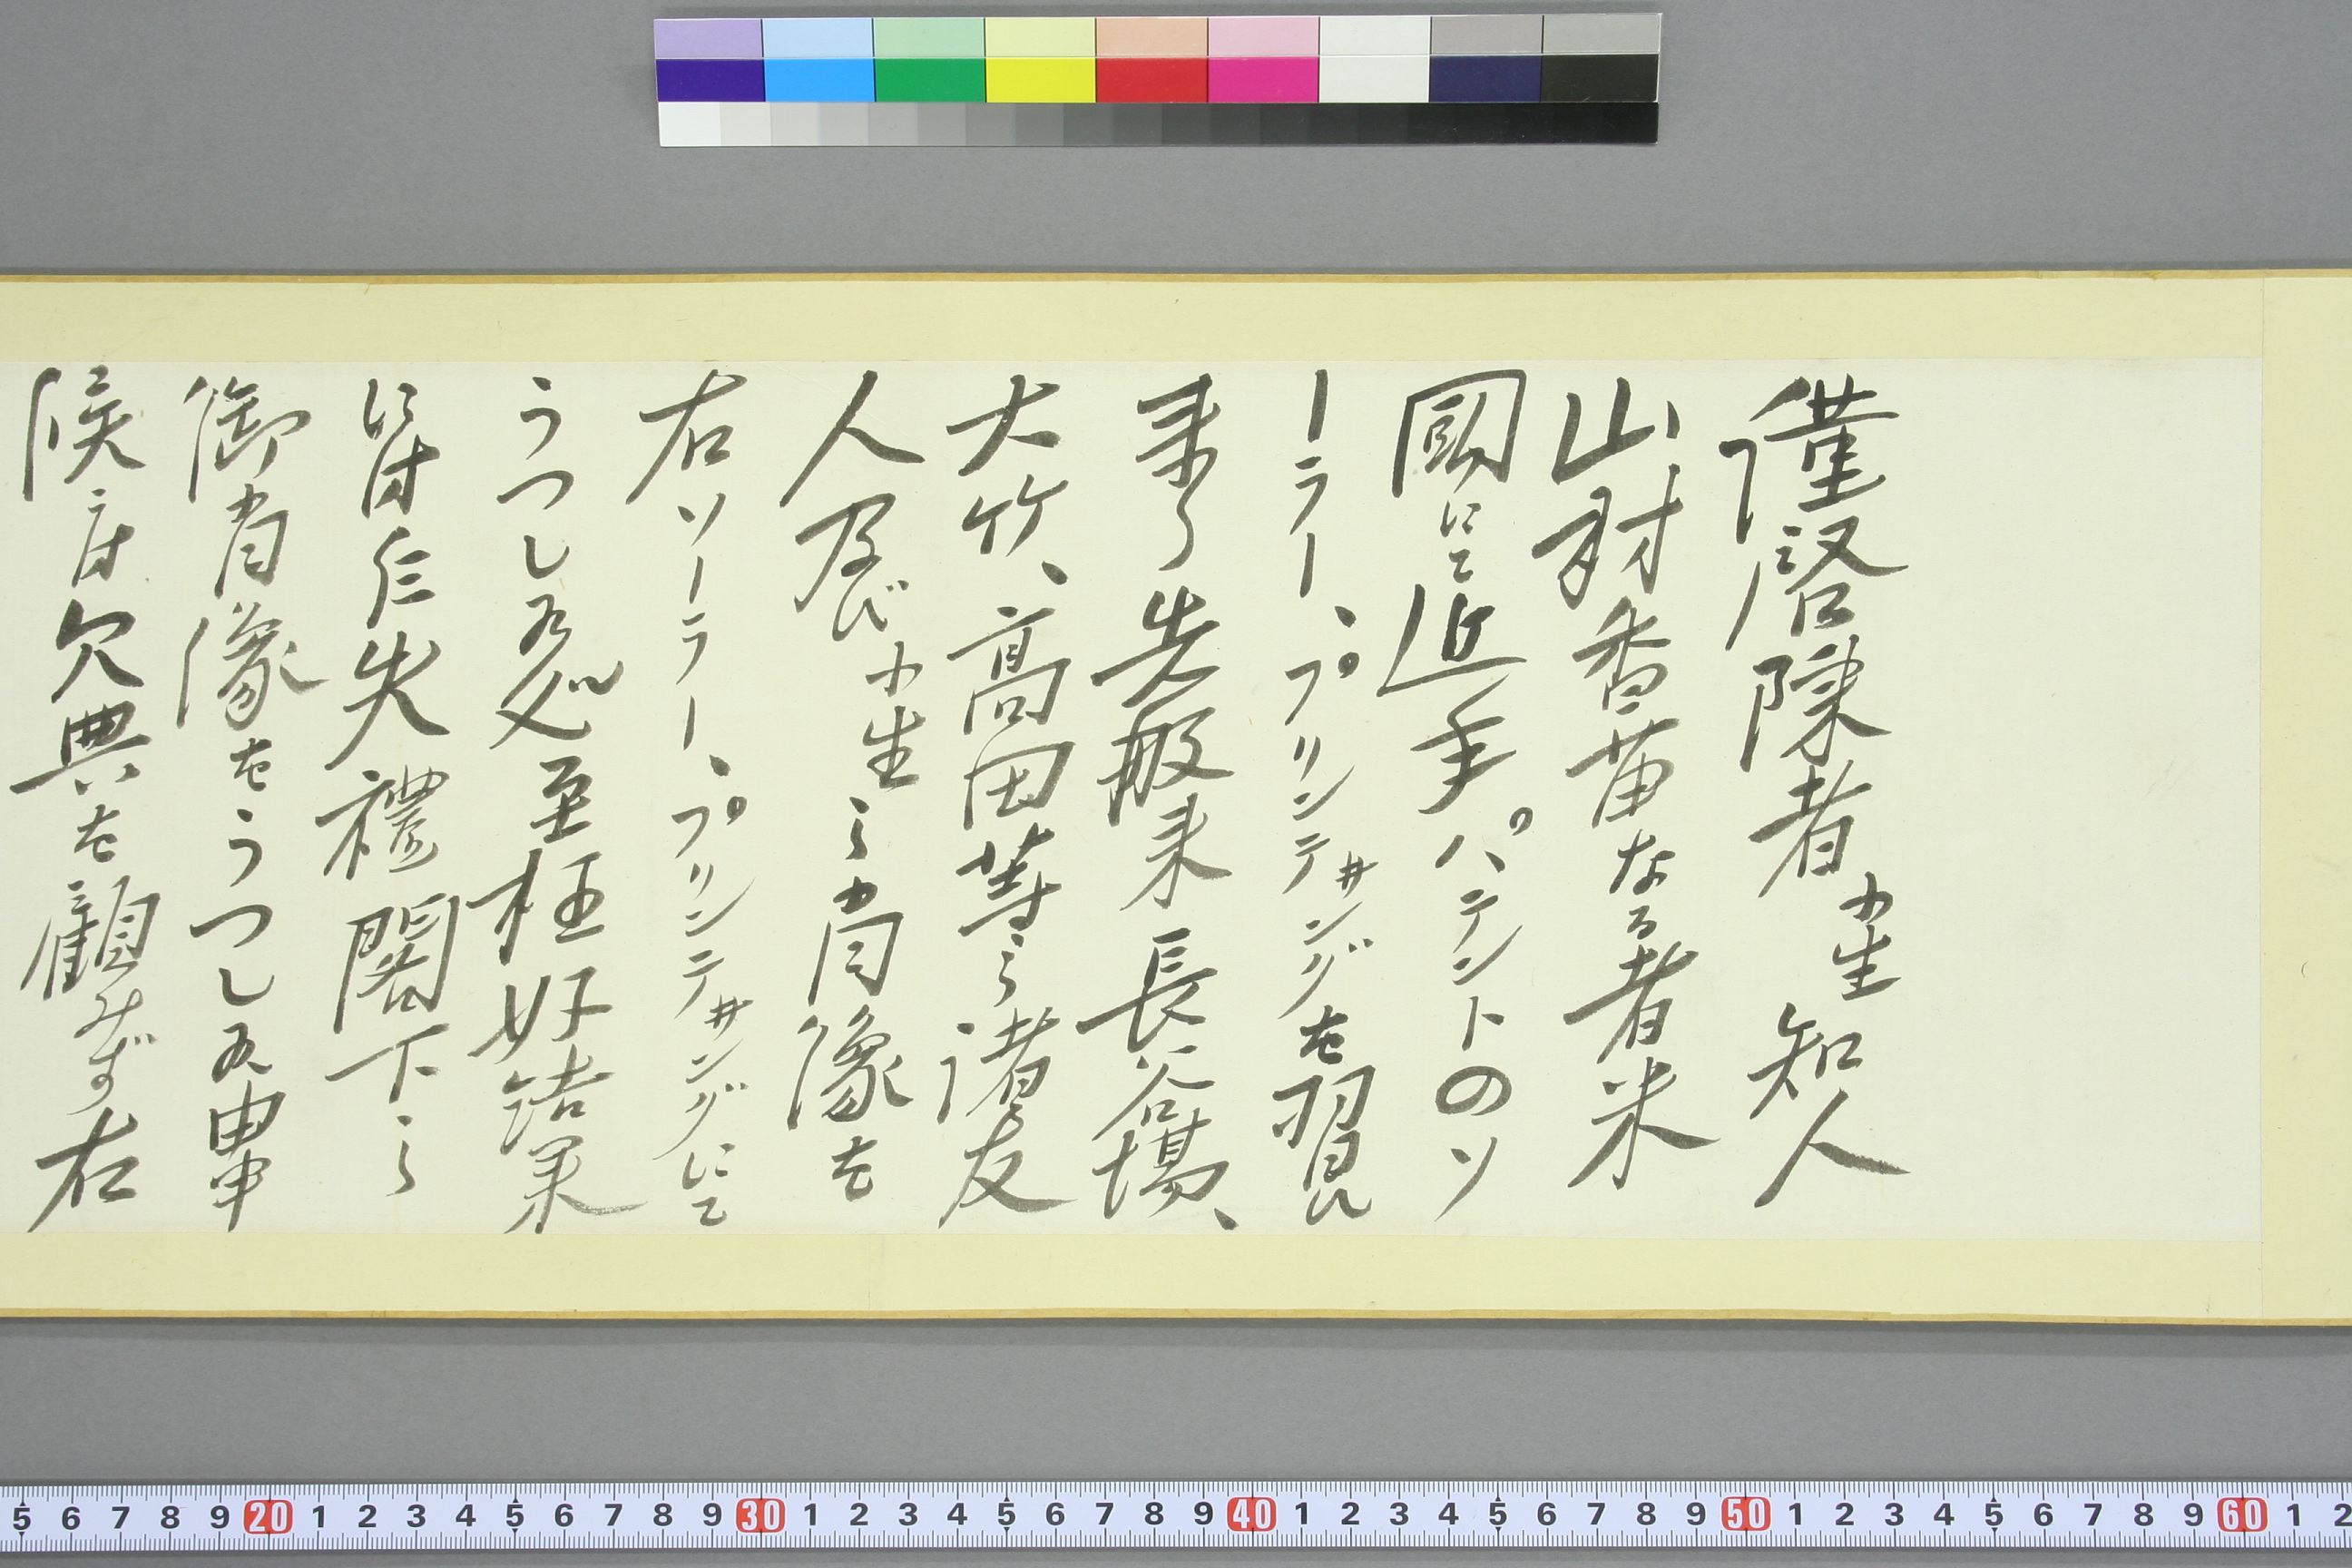 謹啓陳者小生知人
山村香苗なる者米
國にて近年パテントのソ
ーラー、プリンテ井ングを習ひ
来り先般来長谷場、
大竹、高田等之諸友
人及び小生之肖像を
右ソーラー、プリンテ井ングにて
うつし処至極好結果
に付乍失禮閣下之
御肖像をうつし由申
候に付欠典を顧みず右
5 6 7 8 9 20 1 2 3 4 5 6 7 8 9 30 1 2 3 4 5 6 7 8 9 40 1 2 3 4 5 6 7 8 9 50 1 2 3 4 5 6 7 8 9 60 1 2